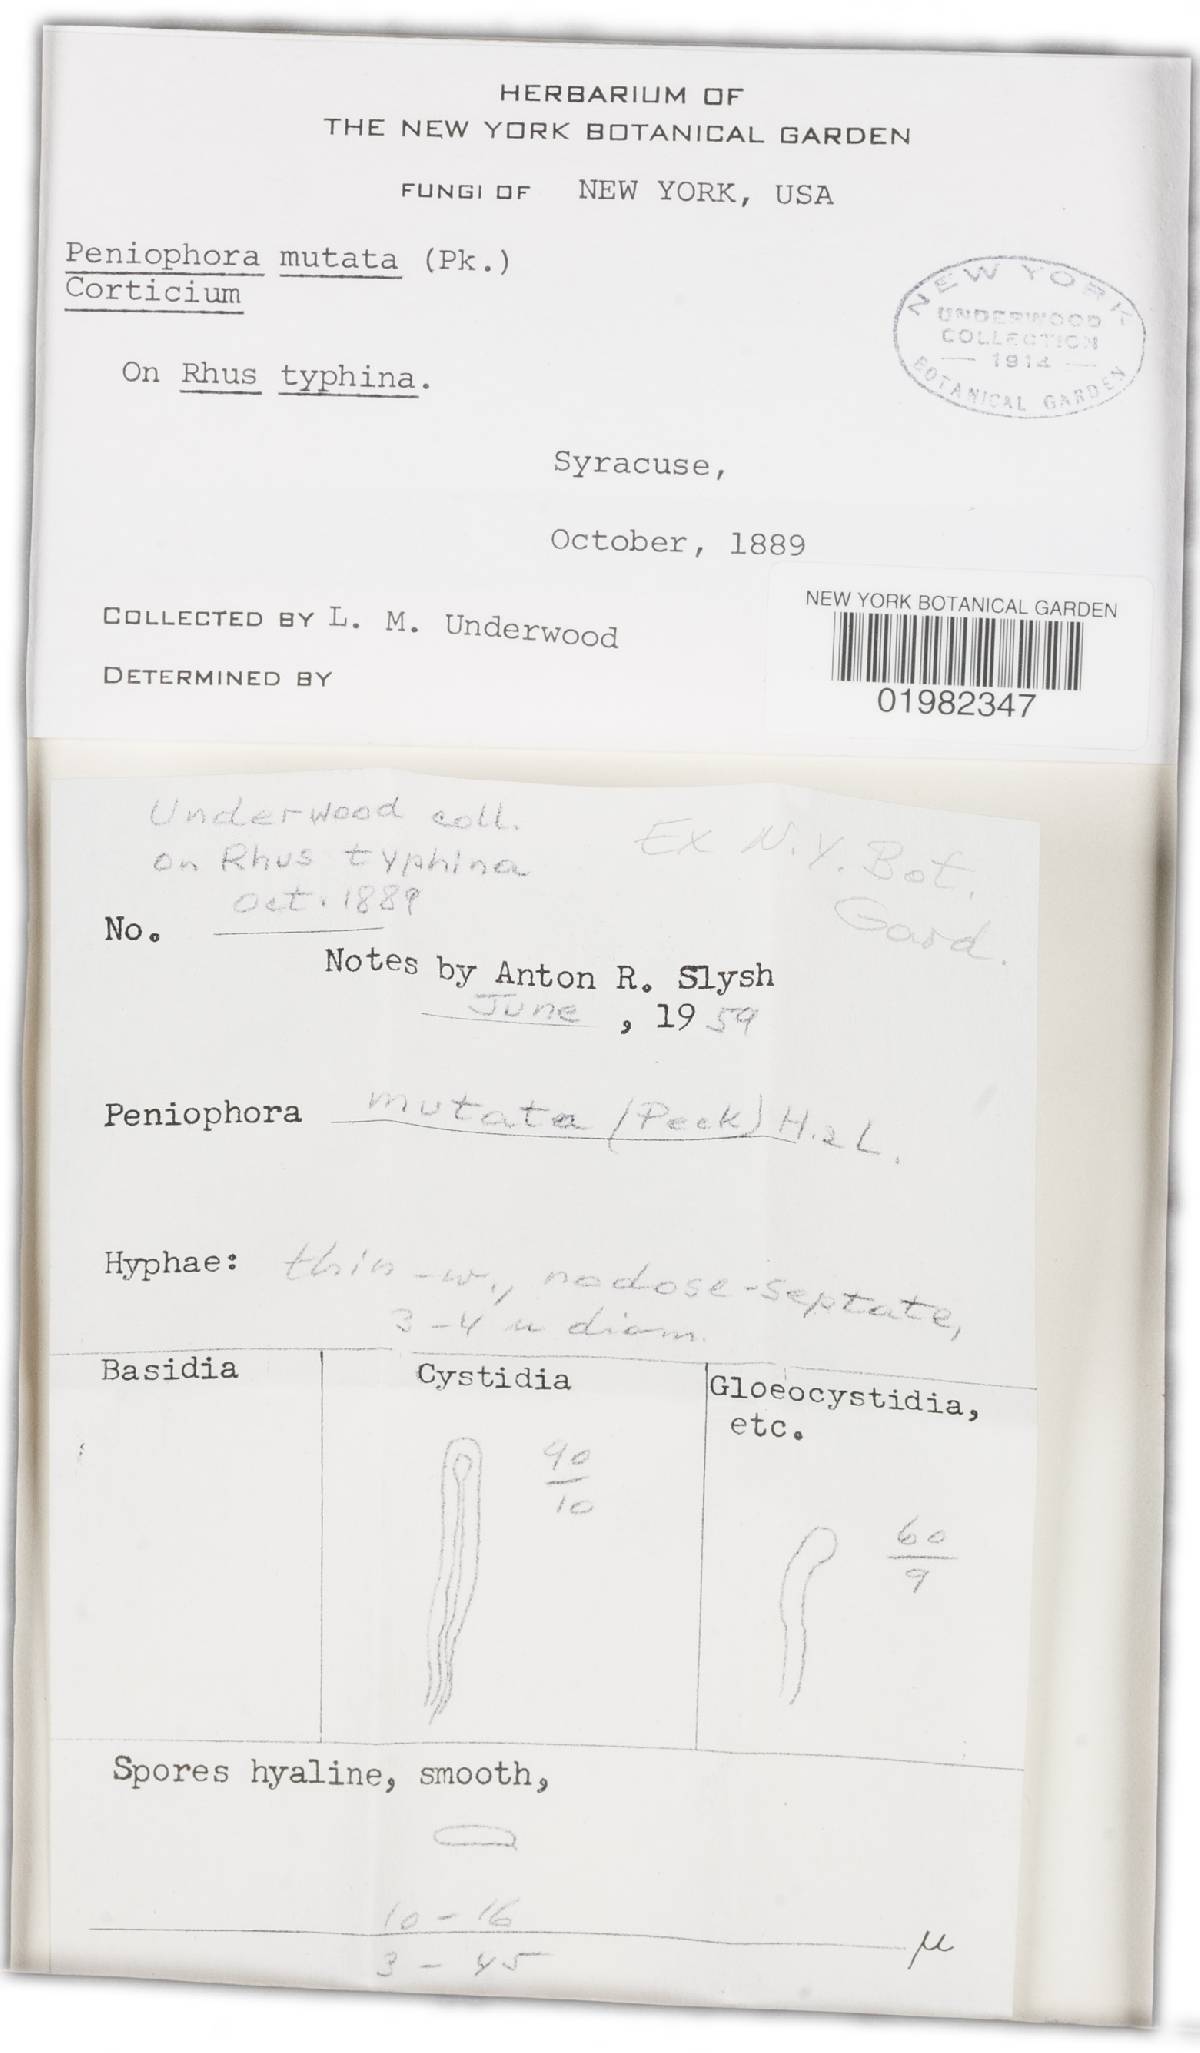 HERBARIUM OF
THE NEW YORK BOTANICAL GARDEN
FUNGI OF NEW YORK, USA
Peniophora mutata (Pk.)
Corticium
NEW YORK
UNDERWOOD
COLLECTION
— 1914 —
BOTANICAL GARDEN
On Rhus typhina.
Syracuse,
October, 1889
COLLECTED BY L. M. Underwood
DETERMINED BY
NEW YORK BOTANICAL GARDEN
01982347
Underwood coll.
on Rhus typhina
Oct. 1889
Ex N.Y. Bot.
Gard.
No.
Notes by Anton R. Slysh
June, 1959
Peniophora mutata (Peck) H. & L.
Hyphae: thin-w., nodose-septate,
3-4 u diam.
Basidia
Cystidia
90
10
Gloeocystidia,
etc.
60
9
Spores hyaline, smooth,
10 - 16
3 - 45
μ